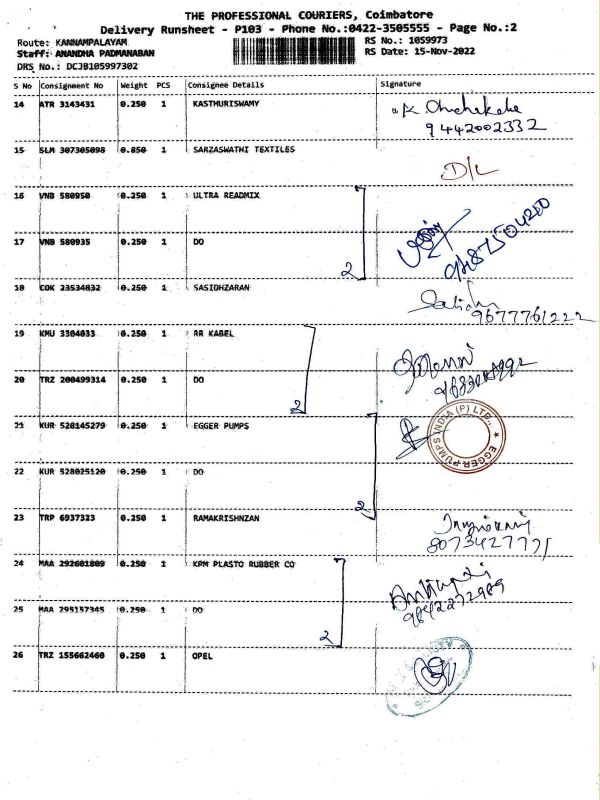 THE PROFESSIONAL COURIERS, Coimbatore
Delivery Runsheet - P103 - Phone No.:0422-3505555 - Page No.:2
Route: KANNAMPALAYAM RS No.: 1059973
Staff: ANANDHA PADMANABAN RS Date: 15-Nov-2022
DRS No.: DCJB105997302
S No Consignment No Weight PCS Consignee Details Signature
14 ATR 3143431 0.250 1 KASTHURISWAMY
9442002332
15 SLM 307305098 0.850 1 SARZASWATHI TEXTILES
D/L
16 VNB 580950 0.250 1 ULTRA READMIX
17 VNB 580935 0.250 1 DO
2
18 COK 23534832 0.250 1 SASIDHZARAN
9677761222
19 KMU 3304033 0.250 1 RR KABEL
20 TRZ 200499314 0.250 1 DO
2
21 KUR 528145279 0.250 1 EGGER PUMPS
EGGER PUMPS INDIA (P) LTD.,
22 KUR 528025120 0.250 1 DO
2
23 TRP 6937323 0.250 1 RAMAKRISHNZAN
24 MAA 292601809 0.250 1 KPM PLASTO RUBBER CO
9842272989
25 MAA 295157345 0.250 1 DO
2
26 TRZ 155662460 0.250 1 OPEL